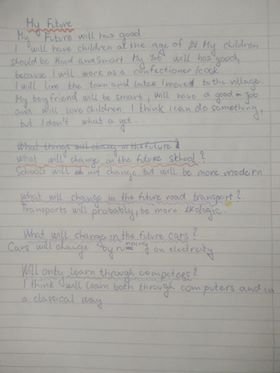 My Future
My Future will has good
I will have children at the age of My children
should be find and smart. My Job will has good,
because I will work as a confectioner (cook
I will live the town and later I moved to the village
My boyfriend will be smart, will have a good Job
and will love children I think I can do something,
but I don't what a yet.
What things will change in the future?
What will change in the future school?
Schools will not change but will be more modern
What will change in the future road transport?
Transports will probably, be more ekologic.
What will change in the future cars?
Cars will change by running on electricity
Will only learn through computers?
I think will learn both through computers and in
a classical way